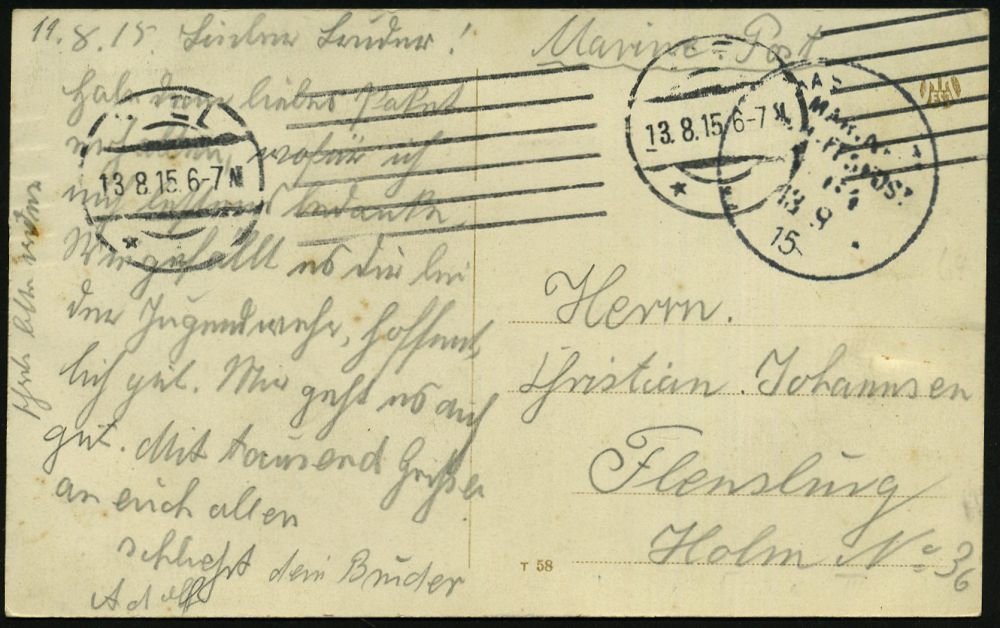 11.8.15. Lieber Bruder!
Habe dein liebes Paket
erhalten, wofür ich
mich bestens bedanke.
Wie gefällt es dir bei
der Jugendwehr, hoffent-
lich gut. Mir geht es auch
gut. Mit tausend Grüßen
an euch allen
schließt dein Bruder
Adolf
bitte
Marine-Post
13.8.15.6-7N
13.8.15.6-7N
MAR.
13 8
15
Herrn.
Christian Johannsen
Flensburg
Holm No 36
T 58